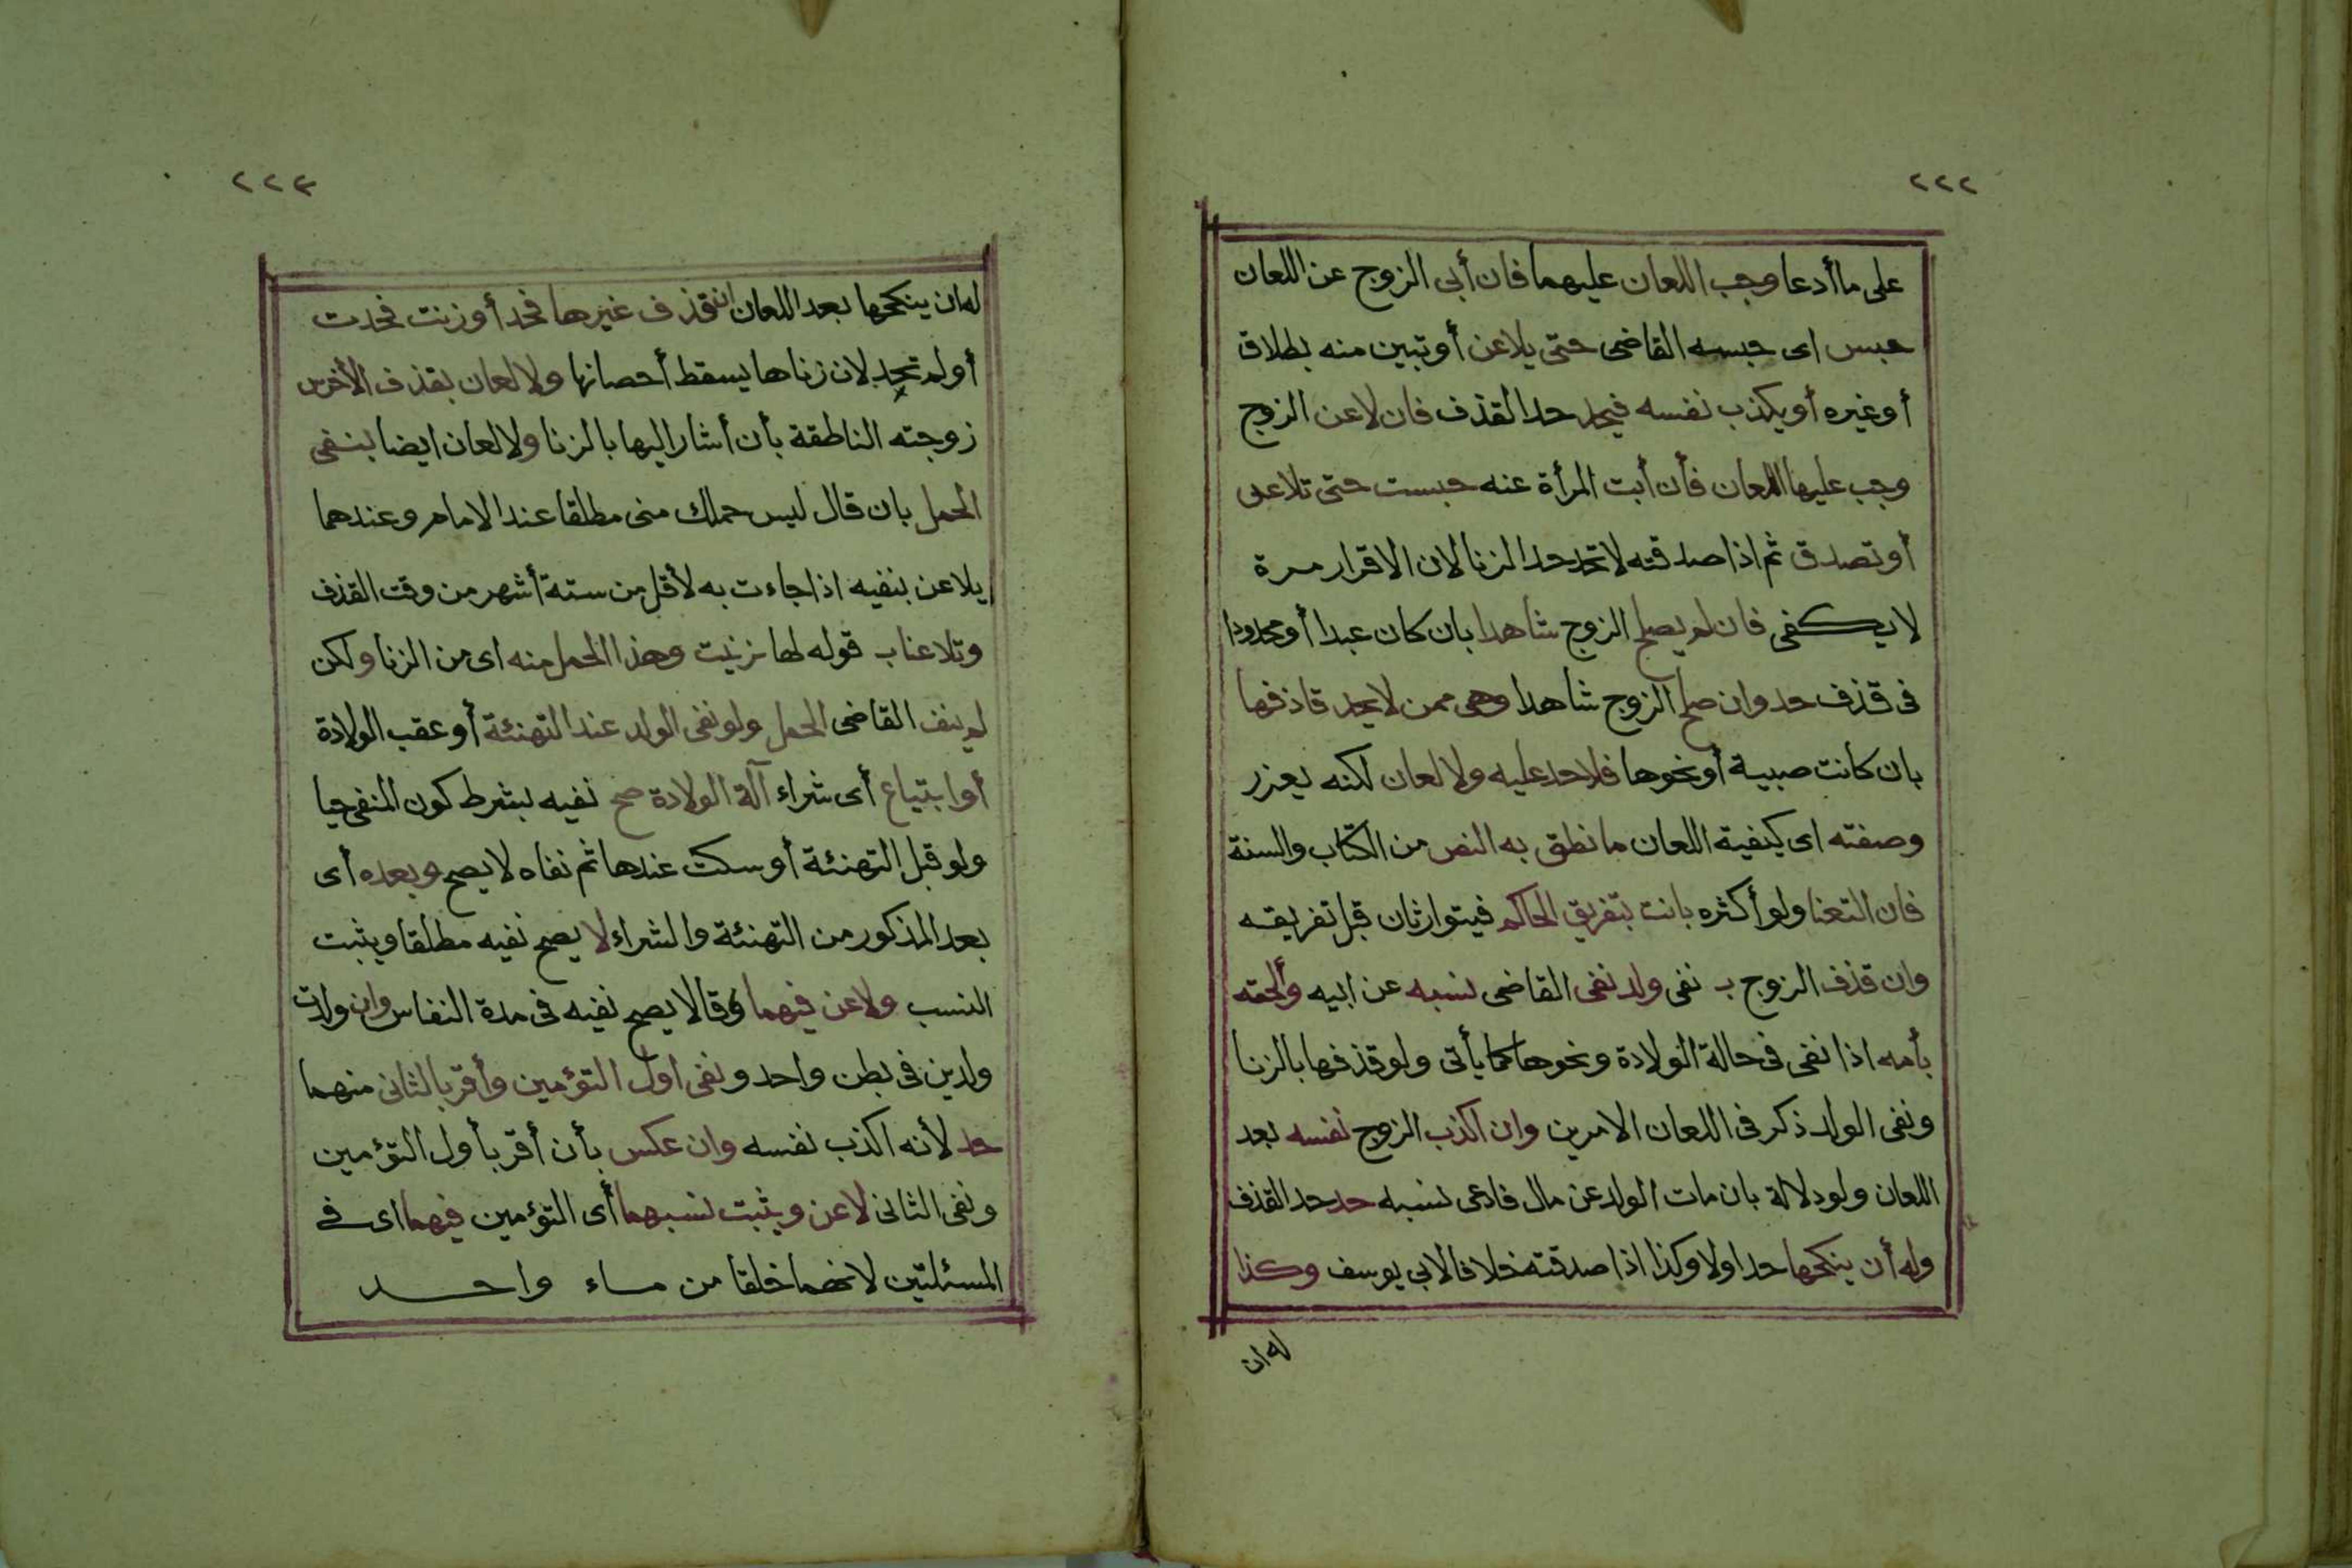 ٢٢٢
على ما أدعا وجب اللعان عليهما فان أبى الزوج عن اللعان
حبس اى حبسه القاضى حتى يلاعن أو تبين منه بطلاق
أو غيره أو يكذب نفسه فيحد حد القذف فان لاعن الزوج
وجب عليها اللعان فأن أبت المرأة عنه حبست حتى تلاعن
أو تصدق ثم اذا صدقته لا تحد حد الزنا لان الاقرار مرة
لا يكفى فان لم يصلح الزوج شاهدا بان كان عبدا أو محدودا
فى قذف حد وان صلح الزوج شاهدا وهى ممن لا يحد قاذفها
بان كانت صبية أو نحوها فلا حد عليه ولا لعان لكنه يعزر
وصفته اى كيفية اللعان ما نطق به النص من الكتاب والسنة
فان التعنا ولو أكثره بانت بتفريق الحاكم فيتوارثان قبل تفريقه
وان قذف الزوج بـ نفى ولد نفى القاضى نسبه عن ابيه وألحقه
بأمه اذا نفى فى حالة الولادة ونحوها كما يأتى ولو قذفها بالزنا
ونفى الولد ذكر فى اللعان الامرين وان اكذب الزوج نفسه بعد
اللعان ولو دلالة بان مات الولد عن مال فادعى نسبه حد حد القذف
وله أن ينكحها حد اولا وكذا اذا صدقته خلافا لابي يوسف وكذا
له ان
٢٢٣
له ان ينكحها بعد اللعان ان قذف غيرها فحد أو زنت فحدت
أو لم تحد لان زناها يسقط أحصانها ولا لعان بقذف الأخرس
زوجته الناطقة بأن أشار اليها بالزنا ولا لعان ايضا بنفى
الحمل بان قال ليس حملك منى مطلقا عند الامام وعندهما
يلاعن بنفيه اذا جاءت به لأقل من ستة أشهر من وقت القذف
وتلاعنا بـ قوله لها زنيت وهذا الحمل منه اى من الزنا ولكن
لم ينف القاضى الحمل ولو نفى الولد عند التهنئة أو عقب الولادة
أو ابتياع أى شراء آلة الولادة صح نفيه بشرط كون المنفى حيا
ولو قبل التهنئة أو سكت عندها ثم نفاه لا يصح وبعده أى
بعد المذكور من التهنئة والشراء لا يصح نفيه مطلقا ويثبت
النسب ولاعن فيهما وقالا يصح نفيه فى مدة النفاس وان ولدت
ولدين فى بطن واحد ونفى اول التؤمين وأقر بالثانى منهما
حد لأنه اكذب نفسه وان عكس بأن أقر بأول التؤمين
ونفى الثانى لاعن ويثبت نسبهما أى التؤمين فيهما اى فى
المسئلتين لانهما خلقا من ماء واحد